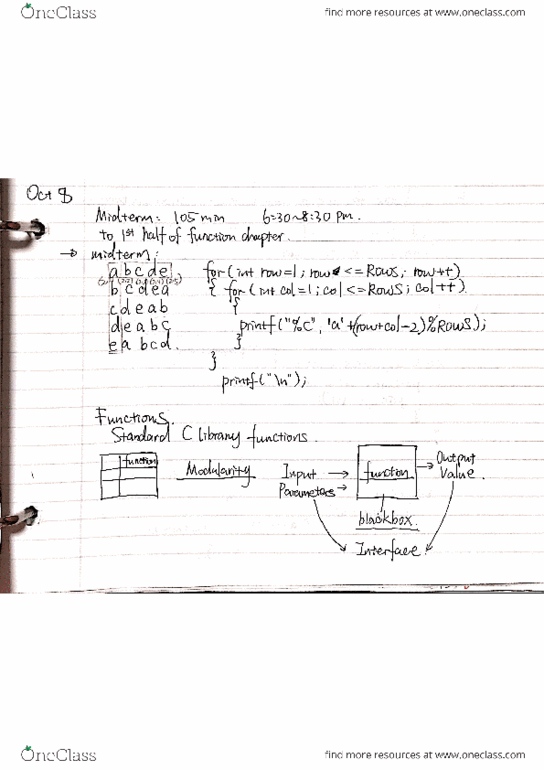 OneClass find more resources at www.oneclass.com
Oct 8
Midterm: 105 min 6:30~8:30 pm.
to 1st half of function chapter.
→ midterm:
abcde for (int row=1; row <=Rows; row++)
bcdea { for (int col=1; col<=Rows; col++)
cdeab {
deabc printf("%c", 'a'+(row+col-2)%Rows);
eabcd. }
}
printf("\n");
Functions.
Standard C library functions.
function Modularity Input → function → Output
Parameters → Value.
blackbox.
Interface
OneClass find more resources at www.oneclass.com